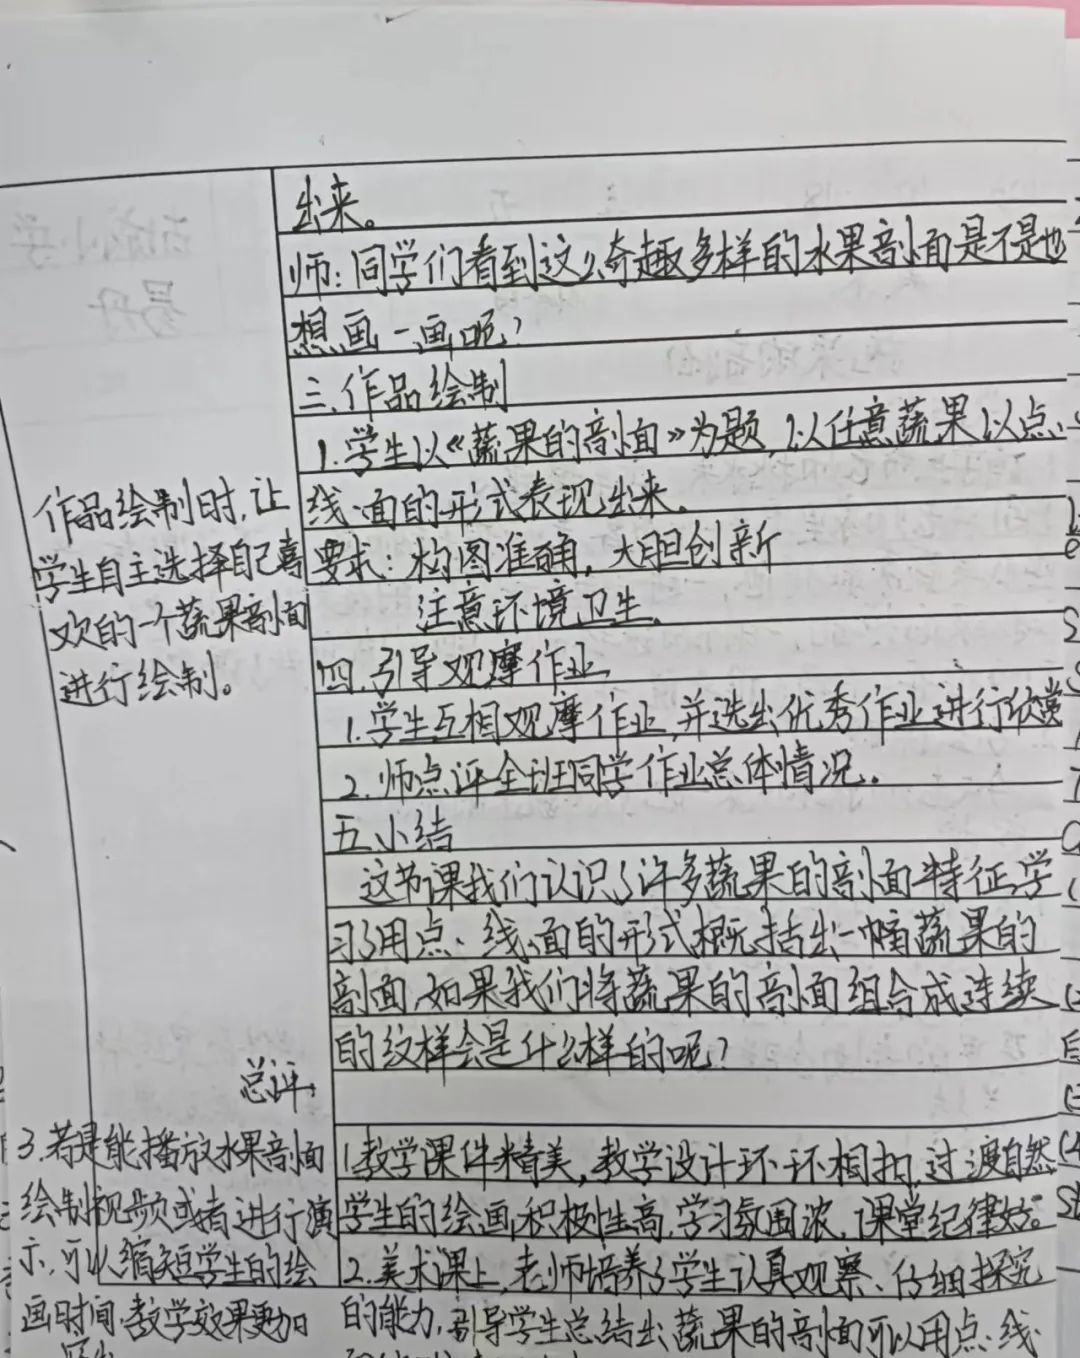 出来。
师：同学们看到这么奇趣多样的水果剖面是不是也
想画一画呢？
三、作品绘制
1.学生以《蔬果的剖面》为题，以任意蔬果以点、
线、面的形式表现出来。
要求：构图准确，大胆创新
注意环境卫生。
四、引导观摩作业
1.学生互相观摩作业，并选出优秀作业进行欣赏
2.师点评全班同学作业总体情况。
五、小结
这节课我们认识了许多蔬果的剖面特征，学
习了用点、线、面的形式概括出一幅蔬果的
剖面，如果我们将蔬果的剖面组合成连续
的纹样会是什么样的呢？
作品绘制时，让
学生自主选择自己喜
欢的一个蔬果剖面
进行绘制。
总评：
1.教学课件精美，教学设计环环相扣，过渡自然
学生的绘画积极性高，学习氛围浓，课堂纪律好。
2.美术课上，老师培养了学生认真观察、仔细探究
的能力，引导学生总结出蔬果的剖面可以用点、线
3.若是能播放水果剖面
绘制视频或者进行演
示，可以缩短学生的绘
画时间，教学效果更加